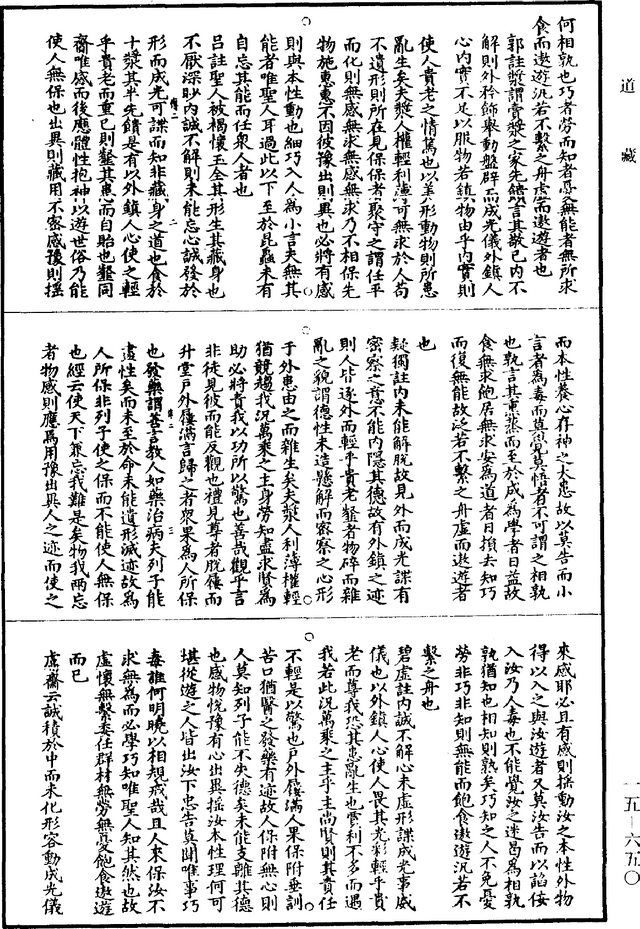 道藏
何相孰也巧者勞而知者憂無能者無所求
食而遨遊汎若不繫之舟虛而遨遊者也
郭註漿謂賣漿之家先饋言其敬已內不
解則外矜飾舉動盤辟而成光儀外鎮人
心內實不足以服物若鎮物由乎內實則
使人貴老之情篤也以美形動物則所患
亂生矣夫漿人權輕利薄可無求於人苟
不遺形則所在見保保者聚守之謂任平
而化則無感無求無感無求乃不相保先
物施惠惠不因彼豫出則異也必將有感
則與本性動也細巧入人為小言夫無其
能者唯聖人耳過此以下至於昆蟲未有
自忘其能而任衆人者也
呂註聖人被褐懷玉全其形生其藏身也
不厭深眇內誠不解則未能忘心誠發於
形而成光可諜而知非藏身之道也食於
十漿其半先饋是有以外鎮人心使之輕
乎貴老而重已則韲其患而自貽也韲同
齋唯感而後應體性抱神以遊世俗乃能
使人無保也出異則藏用不密感豫則搖
而本性養心存神之大患故以莫告而小
言者為毒而莫覺莫悟者不可謂之相孰
也孰言其熏蒸而至於成為學者日益故
食無求飽居無求安為道者日損去知巧
而復無能故汎若不繫之舟虛而遨遊者
也
疑獨註內未能解脫故見外而成光諜有
密察之意不能內隱其德故有外鎮之迹
則人皆逐外而輕乎貴老韲者物碎而雜
亂之貌謂德性未造懸解而密察之心形
于外患由之而雜生矣夫漿人利薄權輕
猶競趨我況萬乘之主身勞知盡求賢為
助必將責我以功所以驚也善哉觀乎言
非徒見彼而能反觀也禮見尊者脫屨而
升堂戶外屨滿言歸之者衆果為人所保
也發藥謂善言教人如藥治病夫列子能
盡性矣而未至於命未能遺形滅迹故為
人所保非列子使之保而不能使人無保
也經云使天下兼忘我難是矣物我兩忘
者物感則應焉用豫出異人之迹而使之
來感耶必且有感則搖動汝之本性外物
得以入之與汝遊者又莫汝告而以諂佞
入汝乃人毒也不能覺汝之迷曷為相孰
孰猶知也相知則熟矣巧知之人不免憂
勞非巧非知則無能而飽食遨遊汎若不
繫之舟也
碧虛註內誠不解心未虛形諜成光事威
儀也以外鎮人心使人畏其光彩輕乎貴
老而尊我恐其患亂生也賣利不多而遇
我若此況萬乘之主乎主尚賢則其責任
不輕是以驚也戶外屨滿人果保附垂訓
苦口猶醫之發藥有迹故人保附無心則
人莫知列子能不失德矣未能支離其德
也感物悅豫有心出異搖汝本性理何可
堪從遊之人皆出汝下忠告莫聞唯事巧
毒誰何明曉以相規戒哉且人來保汝不
求無為而必學巧知唯聖人知其然也故
虛懷無繫委任群材無勞無憂飽食遨遊
而已
鬳齋云誠積於中而未化形容動成光儀
一五—六五〇